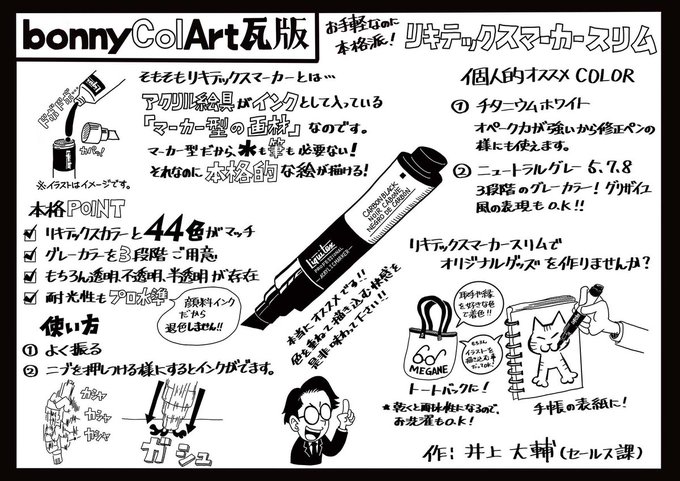 bonnyColArt瓦版
お手軽なのに
本格派!
リキテックスマーカースリム
そもそもリキテックスマーカーとは…
アクリル絵具がインクとして入っている
「マーカー型の画材」なのです。
マーカー型だから、水も筆も必要ない!
それなのに本格的な絵が描ける!
ドボドボ…
カパッ!
※イラストはイメージです。
個人的オススメCOLOR
① チタニウムホワイト
オペーク力が強いから修正ペンの
様にも使えます。
② ニュートラルグレー 5、7、8
3段階のグレーカラー!グリザイユ
風の表現もO.K!!
本格POINT
リキテックスカラーと44色がマッチ
グレーカラーを3段階ご用意
もちろん透明、不透明、半透明が存在
耐光性もプロ水準
顔料インク
だから
退色しません!!
CARBON BLACK
NOIR CARBONE
NEGRO DE CARBÓN
Liquitex
PROFESSIONAL
ACRYLIC MARKER
本当にオススメです!!
色を重ねて描き込む快感を
是非味わって下さい!!
使い方
① よく振る
② ニブを押しつける様にするとインクがでます。
ガシャ
ガシャ
ガシャ
ガシュ
リキテックスマーカースリムで
オリジナルグッズを作りませんか?
取手や縁
を好きな色
で着色!!
もちろん
イラストを
描き込む事
だってO.K!
MEGANE
トートバックに!
★乾くと耐水性になるので、
お洗濯もO.K!
手帳の表紙に!
作:井上 大輔(セールス課)